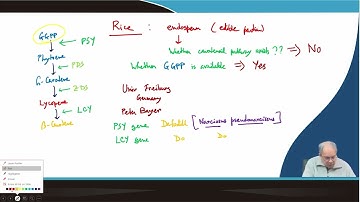 GGPP
PSY
Phytoene
PDS
ζ-Carotene
ZDS
Lycopene
LCY
β-Carotene
Rice : endosperm (edible portion)
Whether carotenoid pathway exists ?? ⇒ No
Whether GGPP is available ⇒ Yes
Univ Freiburg
Germany
Peter Beyer
PSY gene Daffodil [Narcissus pseudonarcissus]
LCY gene Do Do